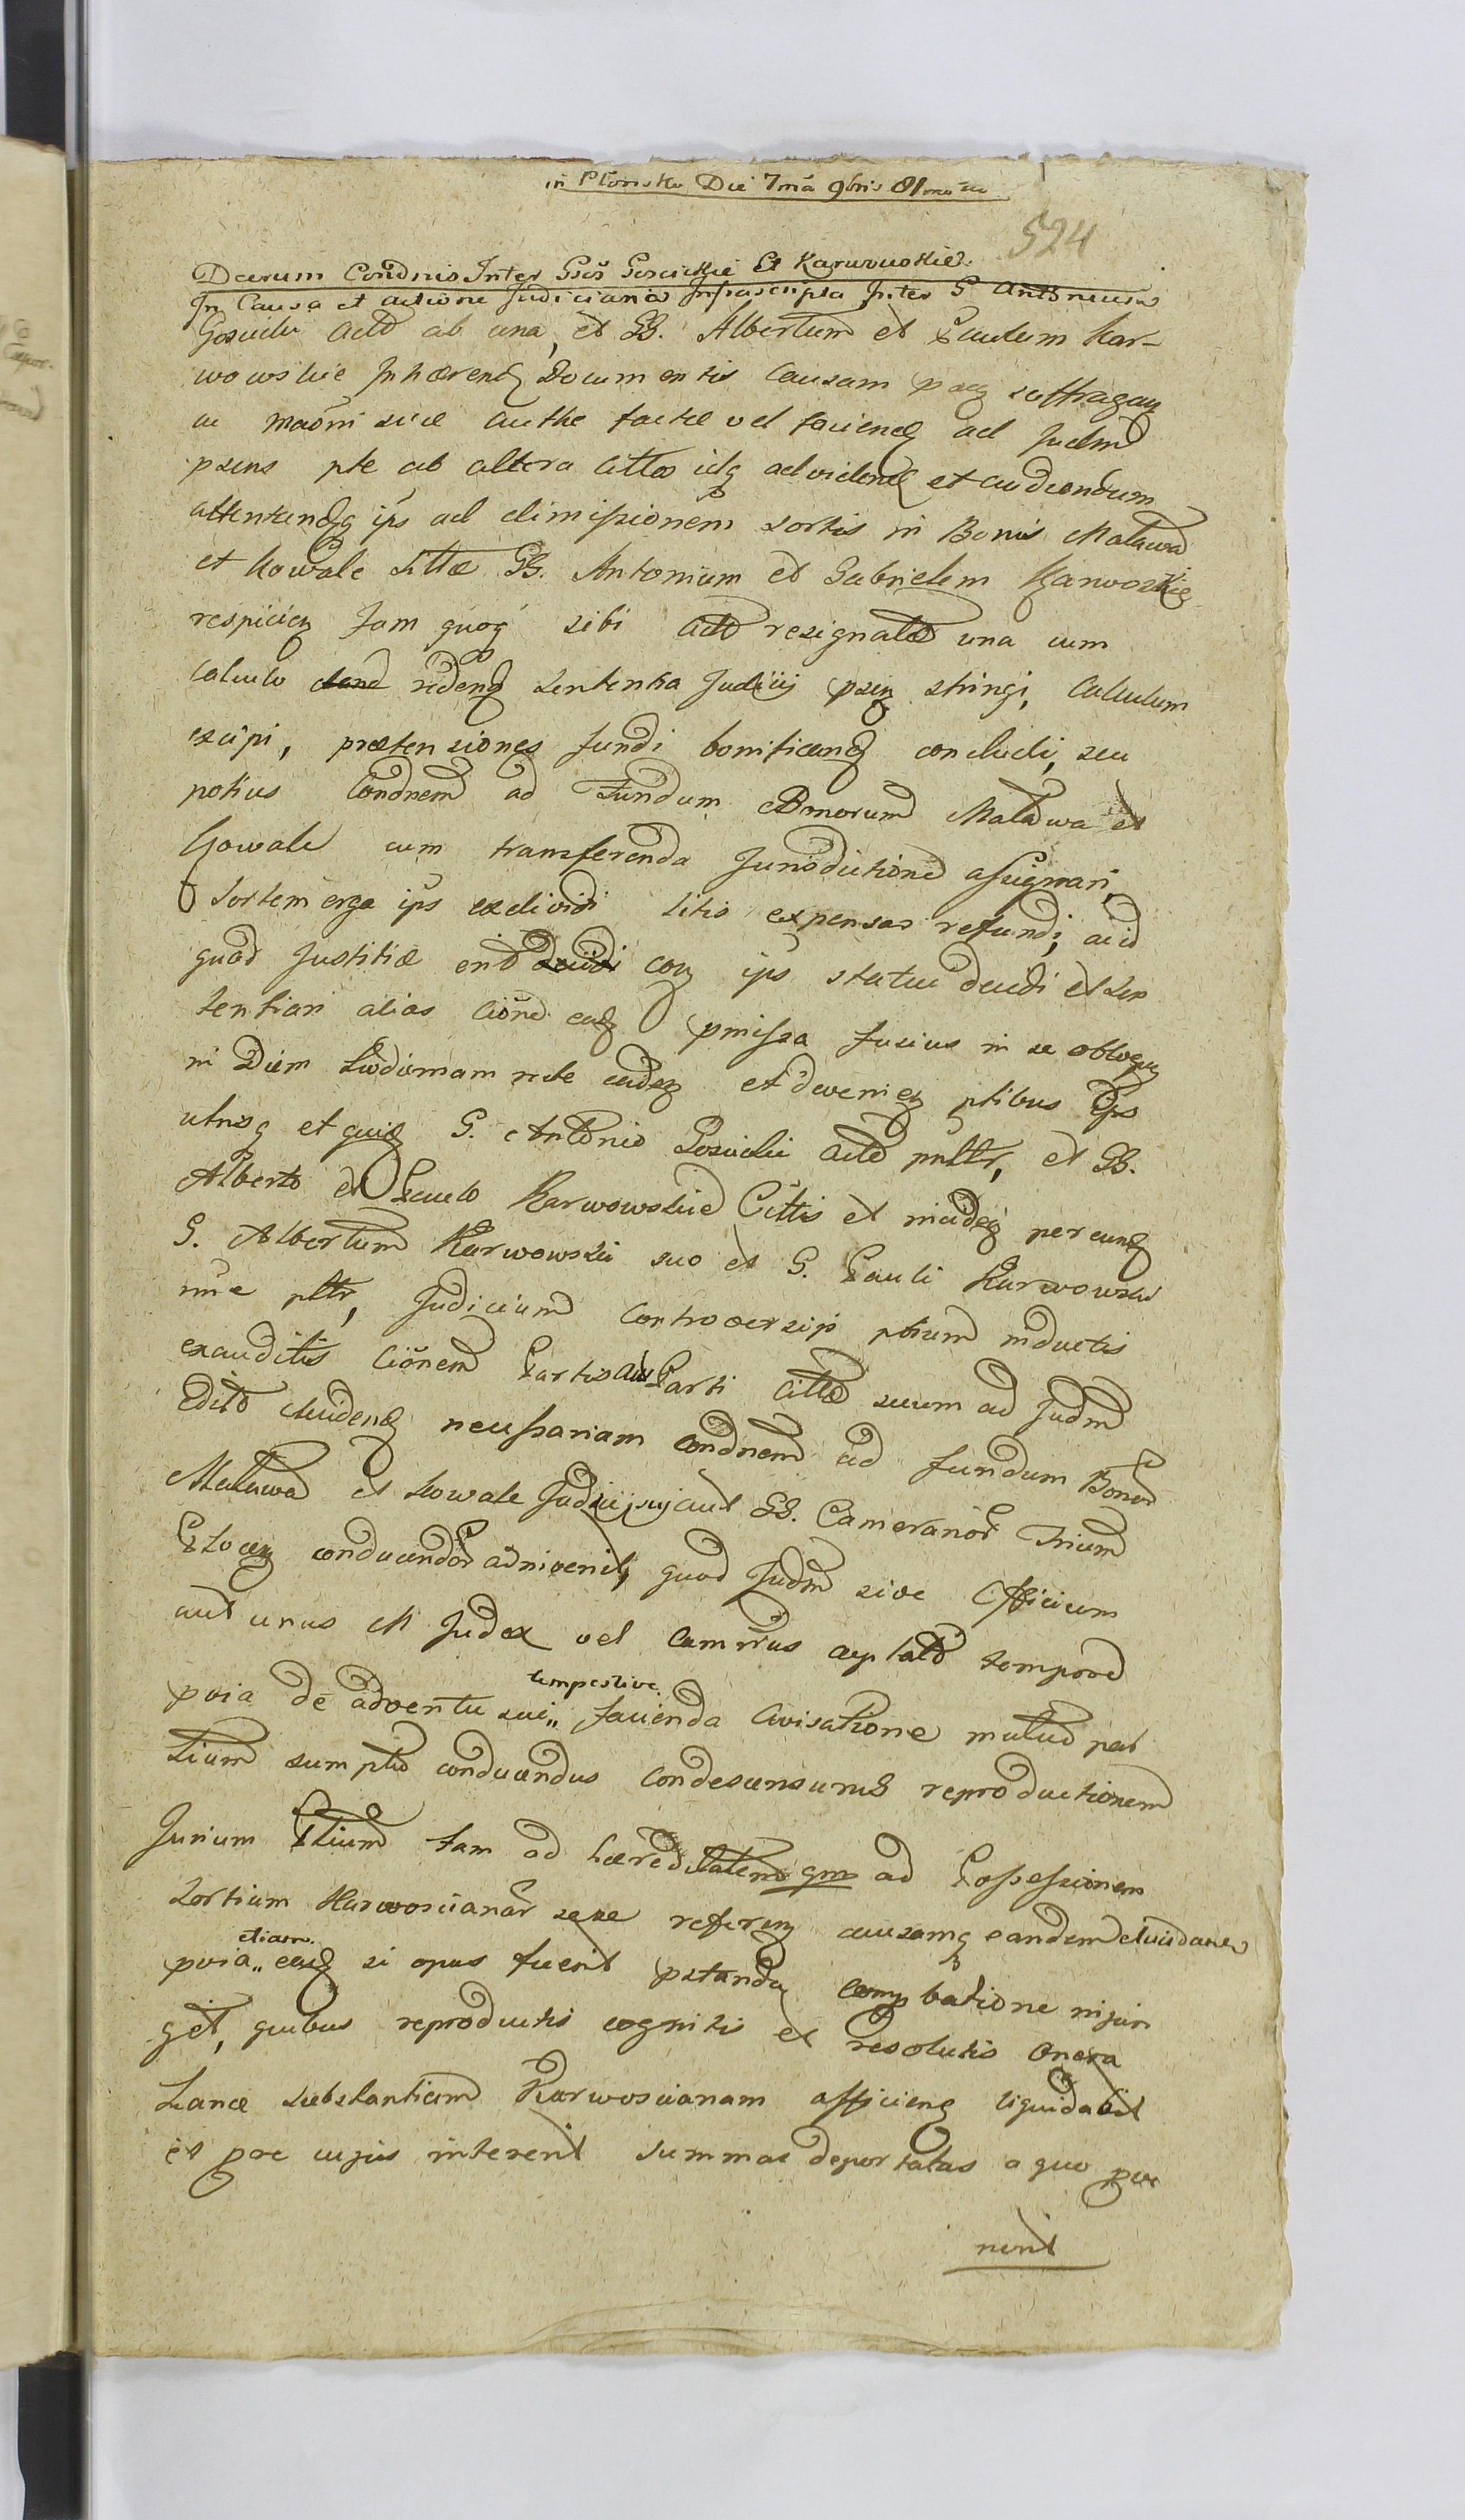 in Płonsku Die 7ma 9bris 81
524
Decrum Condnis Inter Gsos Gosickie Et Karwouskie
In Causa et actione Judiciaria Infrascripta Inter G Antonium
Gosicki actō ab una, et GG. Albertum et Paulum Kar-
wowskie Inhærendq Documentis Causam psq suffragan
ac maōni suæ acthe factæ vel faciendq ad Judm
psens pte ab altera cittos idq ad videndq et audiendum
attentandqq ips ad dimissionem sortis in Bonis Malawa
et Kowale sittæ GG. Antonium et Gabrielem Karwoskie
respicien Jam quoq sibi actō resignatæ una cum
calculo redendq sententia Judicij psen stringi, Calculum
excipi, prætensiones fundi bonificandq concludi, seu
potius Condnem ad Fundum Bonorum Maławwa et
Kowale cum transferenda Jurisdictione assignari,
Sortem erga ips exdividi litis expensas refundi, aid
quod Justitiæ erit coq ips statui decidi et sen
tentiari alias ciōne eadq pmissa fusius in se obloqn
in Diem hodiernam rite cadeq et deveniq ptibus ips
utrisq et quidq G. Antonio Gosicki actō pnltr, et GG.
Alberto et Paulo Karwowskie Cittis et inibidq per eundq
G. Albertum Karwowski suo et G. Pauli Karwowski
nne pltr, Judicium controversijs ptium inductis
exauditis Ciōnem Partis act Parti cittæ suum ad Judm
Edito elucidendq necessariam condnem ad fundum Bonor
Malawa et Kowale Judicij sui aut GG. Camerarior Trium
Ptocen conducendor adinvenit, quod Judm sive Officium
aut unus M Judex vel Camrius aptato tempore
pvia de adventu sui,, tempestive facienda avisatione mutuo par
tium sumptu conducendus condescensurus reproductionem
Jurium Ptium tam ad hæreditatem qm ad Possessionem
Sortium Karwoscianar sese referen causamq eandem elucidanes
pvia,, etiam eadq si opus fuerit pstanda comp batione injun
get, quibus reproductis cognitis et resolutis onera
hance substantiam Karwoscianam afficiens liquidabit
et poe cujus intererit summas deportatas a quo pve
nerit